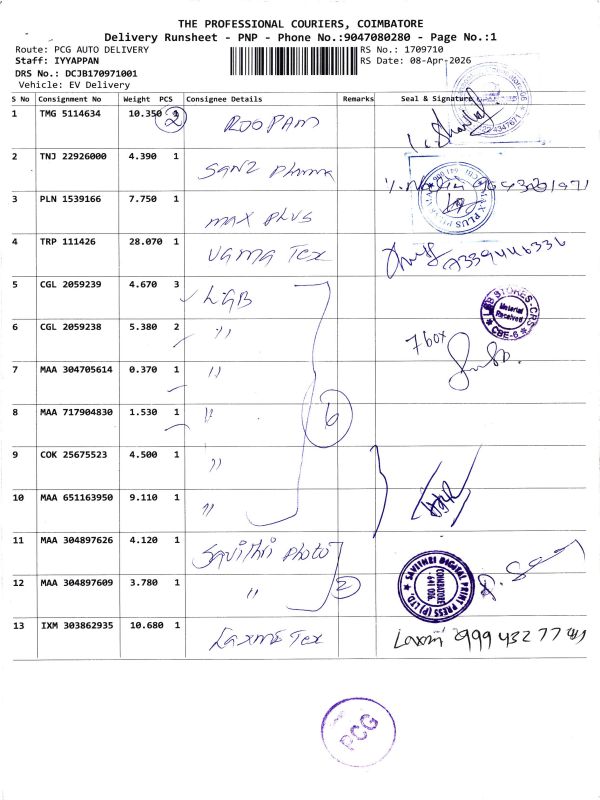 THE PROFESSIONAL COURIERS, COIMBATORE
Delivery Runsheet - PNP - Phone No.:9047080280 - Page No.:1
Route: PCG AUTO DELIVERY
RS No.: 1709710
Staff: IYYAPPAN
RS Date: 08-Apr-2026
DRS No.: DCJB170971001
Vehicle: EV Delivery
S No Consignment No Weight PCS Consignee Details Remarks Seal & Signature
1 TMG 5114634 10.350 2 ROOPAM
2 TNJ 22926000 4.390 1 Sanz Pharma
3 PLN 1539166 7.750 1 max plus
MAX PLUS
4 TRP 111426 28.070 1 Vama Tex 7339446336
5 CGL 2059239 4.670 3 LGB
LGB STORES-CRS
Material Received
CBE-6
6 CGL 2059238 5.380 2 " 7 box
7 MAA 304705614 0.370 1 "
8 MAA 717904830 1.530 1 " 6
9 COK 25675523 4.500 1 "
10 MAA 651163950 9.110 1 "
11 MAA 304897626 4.120 1 Savithri Photo
12 MAA 304897609 3.780 1 " 2
SAVITHRI DIGITAL PRINT PRESS (P) LTD.
COIMBATORE
641 001
13 IXM 303862935 10.680 1 Laxmi Tex Laxmi
PCG